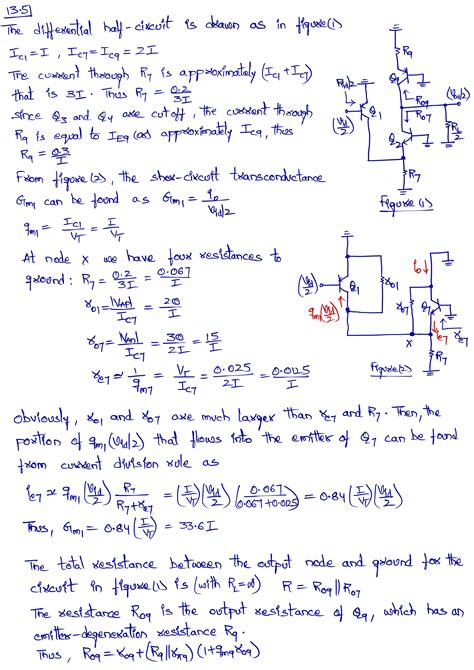 13.5]
The differential half-circuit is drawn as in figure(1)
I_C1 = I , I_C7 = I_C9 = 2I
The current through R7 is approximately (I_C1 + I_C7)
that is 3I. Thus R7 = 0.2/3I
since Q3 and Q4 are cutoff, the current through
R9 is equal to I_E9 (or) approximately I_C9, thus
R9 = 0.3/I
From figure (2), the short-circuit transconductance
Gm1 can be found as Gm1 = io/(Vid/2)
gm1 = I_C1/V_T = I/V_T
At node X we have four resistances to
ground: R7 = 0.2/3I = 0.067/I
ro1 = |VAp|/I_C1 = 20/I
ro7 = |VAn|/I_C7 = 30/2I = 15/I
re7 ≃ 1/gm7 = V_T/I_C7 = 0.025/2I = 0.0125/I
Obviously, ro1 and ro7 are much larger than re7 and R7. Then, the
portion of gm1(Vid/2) that flows into the emitter of Q7 can be found
from current division rule as
ie7 ≃ gm1 (Vid/2) R7/(R7+re7) = (I/V_T)(Vid/2)(0.067/(0.067+0.025)) = 0.84(I/V_T)(Vid/2)
Thus, Gm1 = 0.84(I/V_T) = 33.6I
The total resistance between the output node and ground for the
circuit in figure(1) is (with RL=∞) R = Ro9||Ro7
The resistance Ro9 is the output resistance of Q9, which has an
emitter-degeneration resistance R9.
Thus, Ro9 = ro9 + (R9||rπ9)(1+gm9ro9)
R9
Q9
Rid/2
(Vid/2)
Q1
Ro9
Ro7
(Vod/2)
RL/2
R7
Figure(1)
(Vid/2)
Q1
ro1
gm1(Vid/2)
io
ro7
Q7
ie7
re7
X
R7
Figure(2)